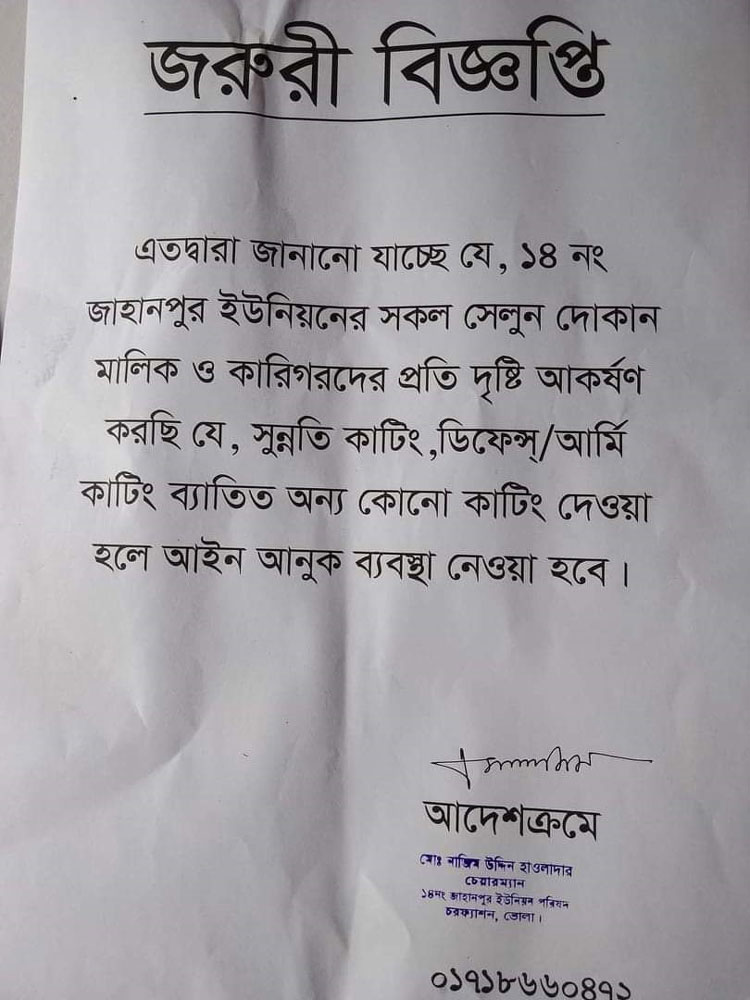 জরুরী বিজ্ঞপ্তি
এতদ্বারা জানানো যাচ্ছে যে, ১৪ নং
জাহানপুর ইউনিয়নের সকল সেলুন দোকান
মালিক ও কারিগরদের প্রতি দৃষ্টি আকর্ষণ
করছি যে, সুন্নতি কাটিং,ডিফেন্স/আর্মি
কাটিং ব্যাতিত অন্য কোনো কাটিং দেওয়া
হলে আইন আনুক ব্যবস্থা নেওয়া হবে।
আদেশক্রমে
মোঃ নাজিম উদ্দিন হাওলাদার
চেয়ারম্যান
১৪নং জাহানপুর ইউনিয়ন পরিষদ
চরফ্যাশন, ভোলা।
০১৭১৮৬৬০৪৭১